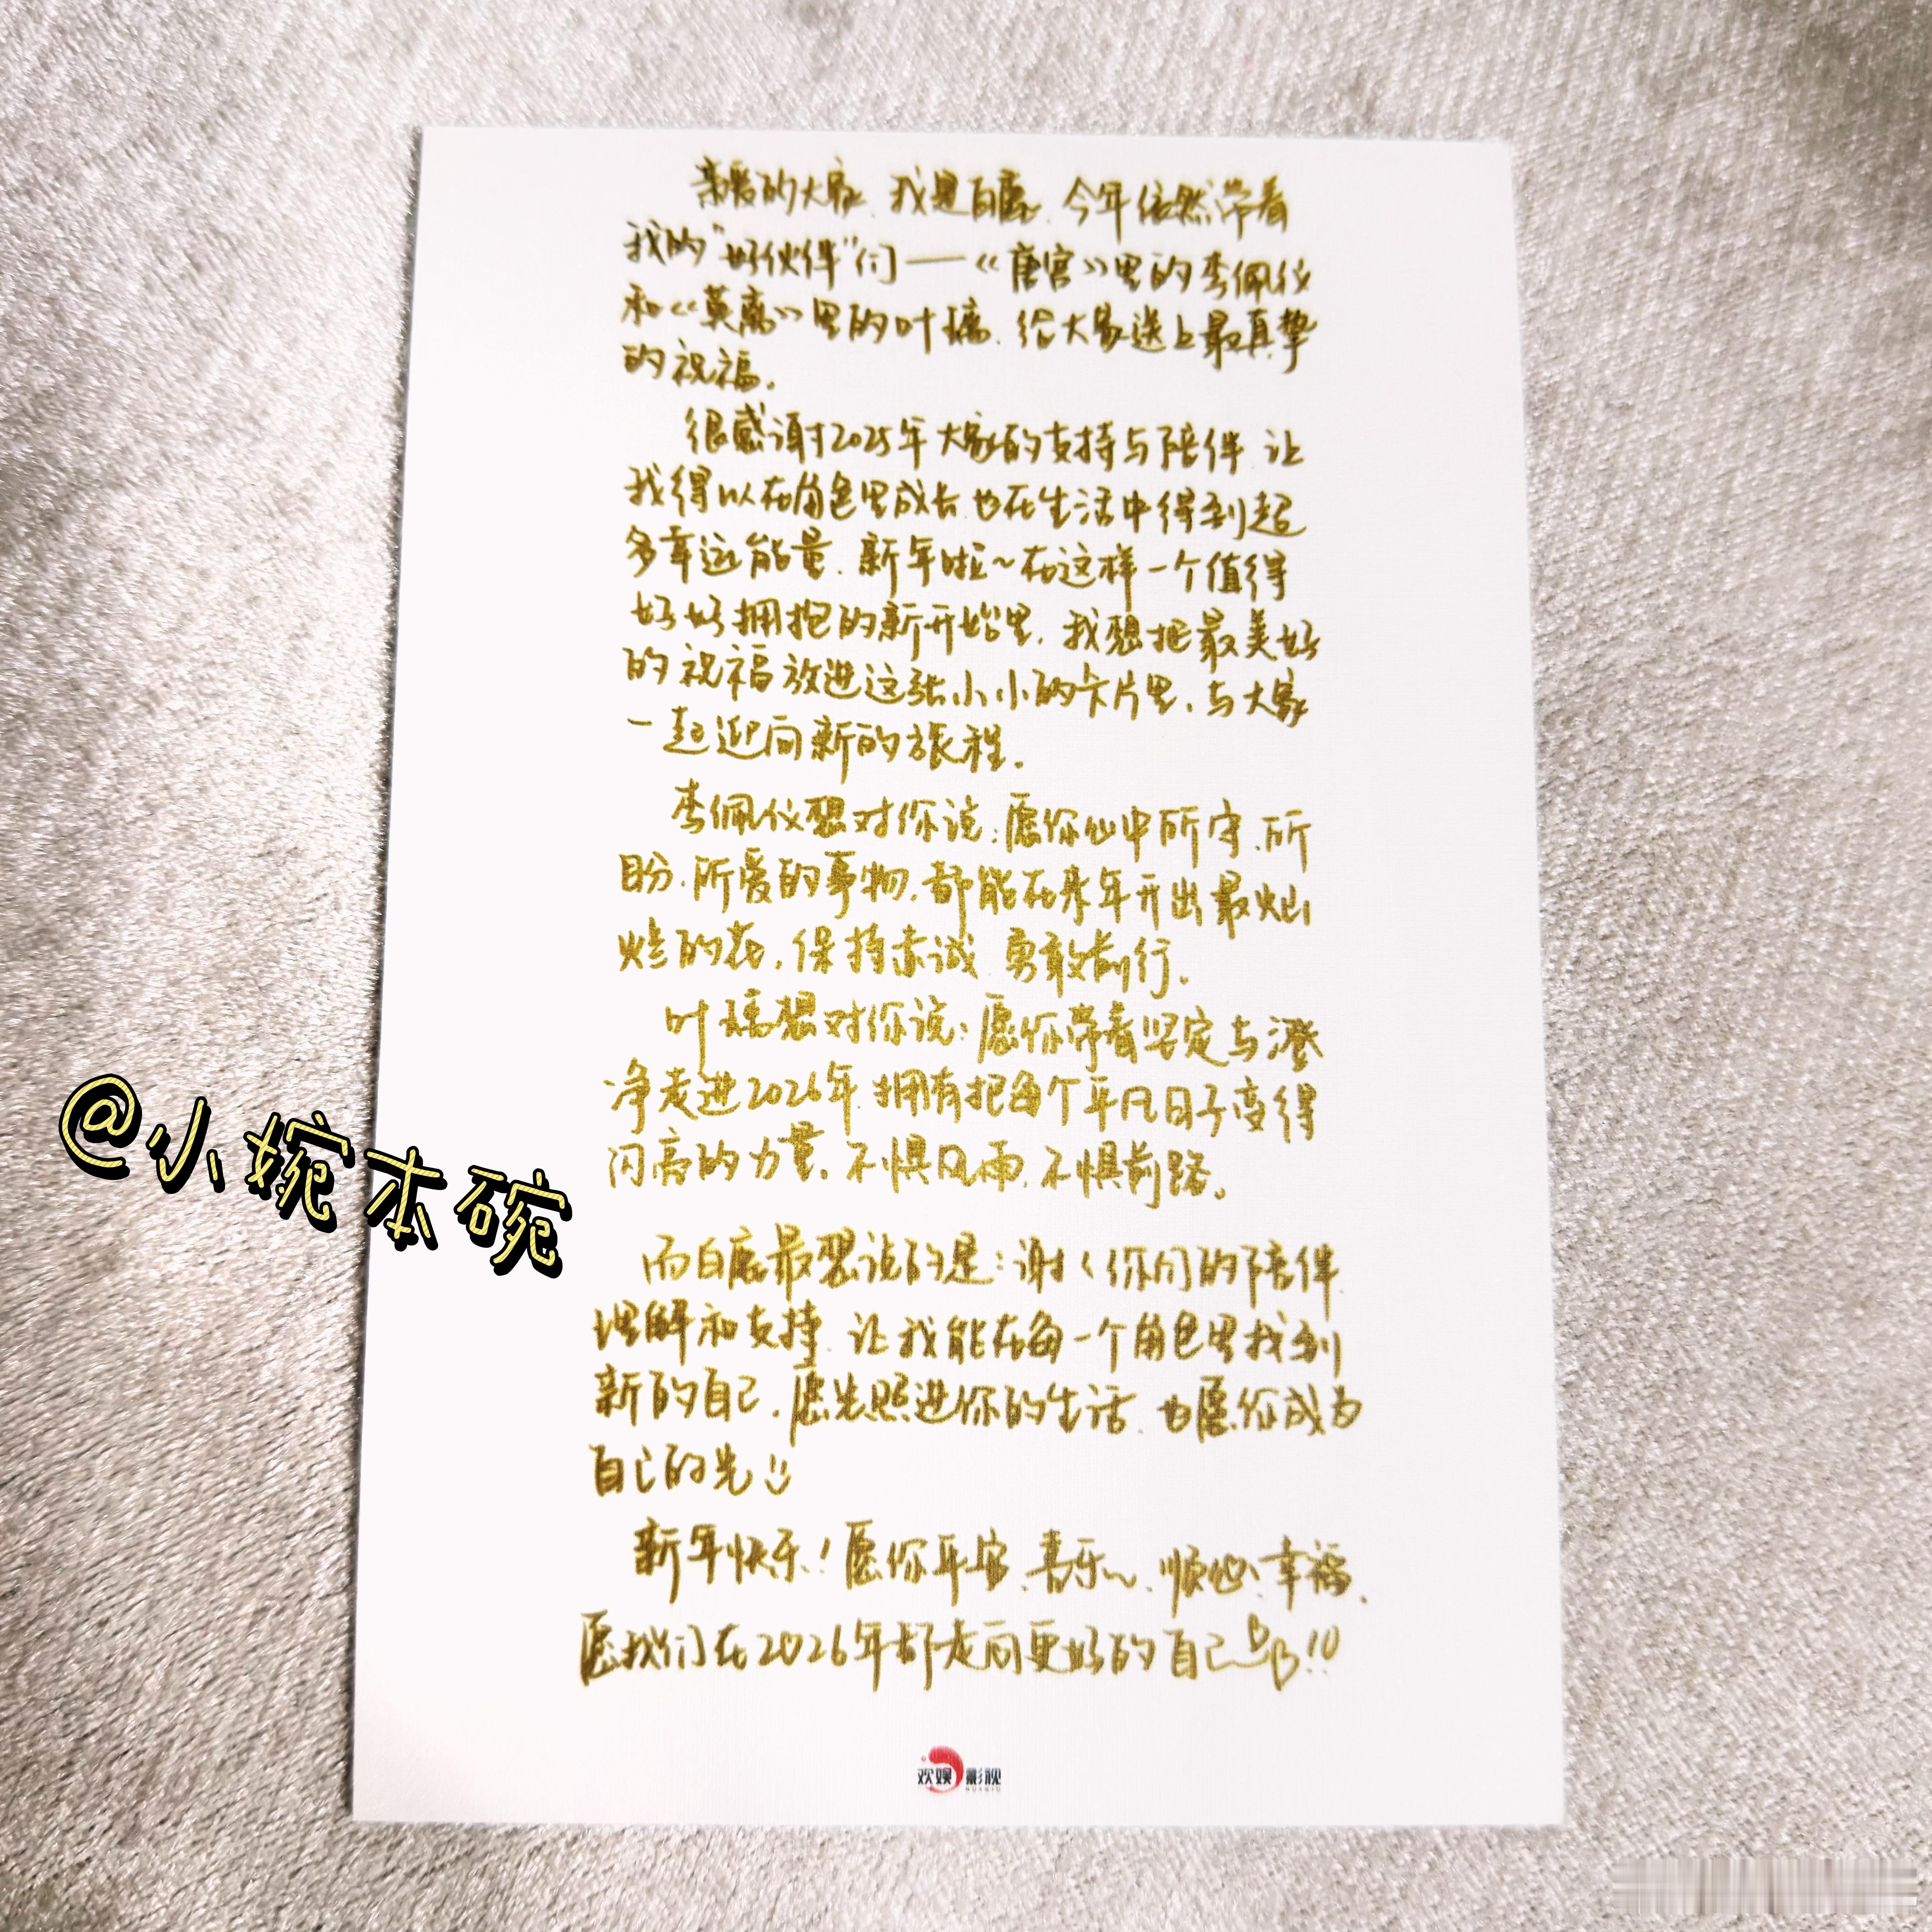 亲爱的大家、我是白鹿、今年依然带着
我的“好伙伴”们——《唐宫》里的李佩仪
和《莫离》里的叶璃、给大家送上最真挚
的祝福。
很感谢2025年大家的支持与陪伴、让
我得以在角色里成长、也在生活中得到超
多幸运能量、新年啦~在这样一个值得
好好拥抱的新开始里、我想把最美好
的祝福放进这张小小的卡片里、与大家
一起迎向新的旅程。
李佩仪想对你说：愿你心中所守、所
盼、所爱的事物、都能在来年开出最灿
烂的花、保持赤诚、勇敢前行。
叶璃想对你说：愿你带着坚定与澄
净走进2026年、拥有把每个平凡日子变得
闪亮的力量、不惧风雨、不惧前路。
而白鹿最想说的是：谢く你们的陪伴、
理解和支持、让我能在每一个角色里找到
新的自己、愿光照进你的生活、也愿你成为
自己的光!!
新年快乐！愿你平安、喜乐~、顺心、幸福、
愿我们在2026年都走向更好的自己!!
@小婉本碗
欢娱影视
HUANYU